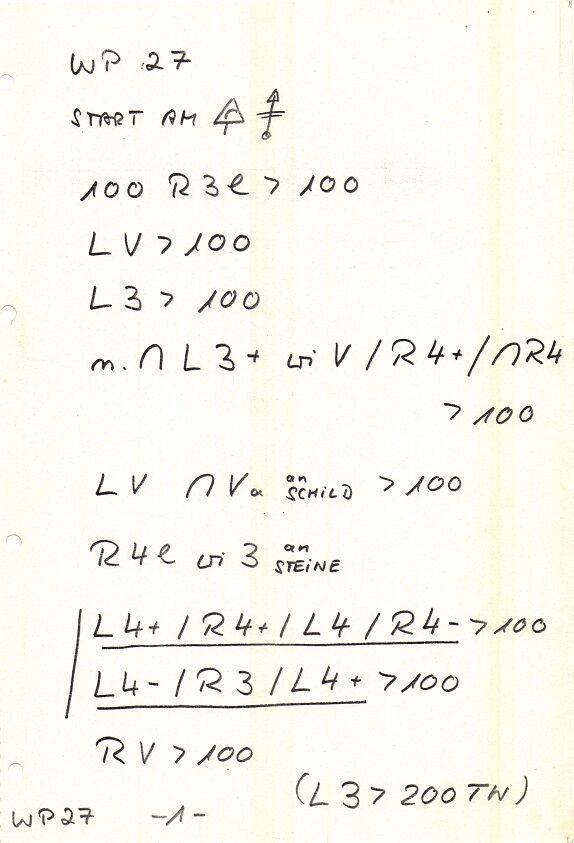 WP 27
START AM
100 R3l > 100
LV > 100
L3 > 100
m. ∩ L3+ wi V / R4+ / ∩R4
> 100
LV ∩ Va an SCHILD > 100
R4l wi 3 an STEINE
L4+ / R4+ / L4 / R4- > 100
L4- / R3 / L4+ > 100
RV > 100
(L3 > 200 TW)
WP27 -1-